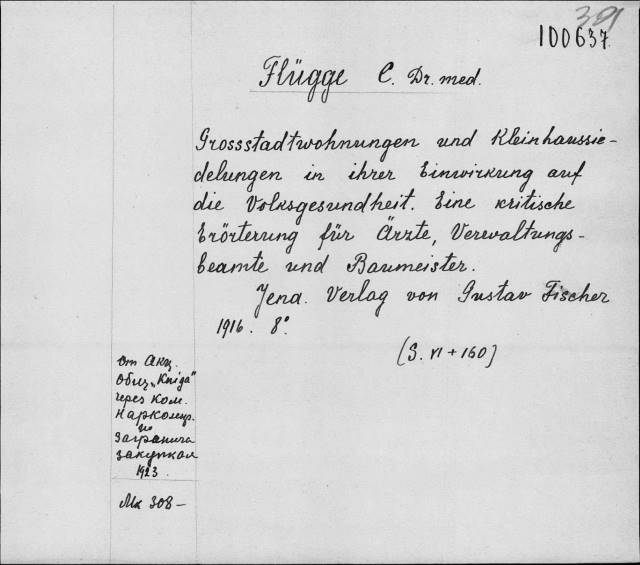 39
100637
Flügge C. Dr. med.
Grossstadtwohnungen und Kleinhaussie-
delungen in ihrer Einwirkung auf
die Volksgesundheit. Eine kritische
Erörterung für Ärzte, Verwaltungs-
beamte und Baumeister.
Jena. Verlag von Gustav Fischer
1916. 8°.
(S. VI + 160)
от Акц.
Общ. „Kniga"
через Ком.
Нарком
по
загранич
закупкам
1923.
Мк 308 –